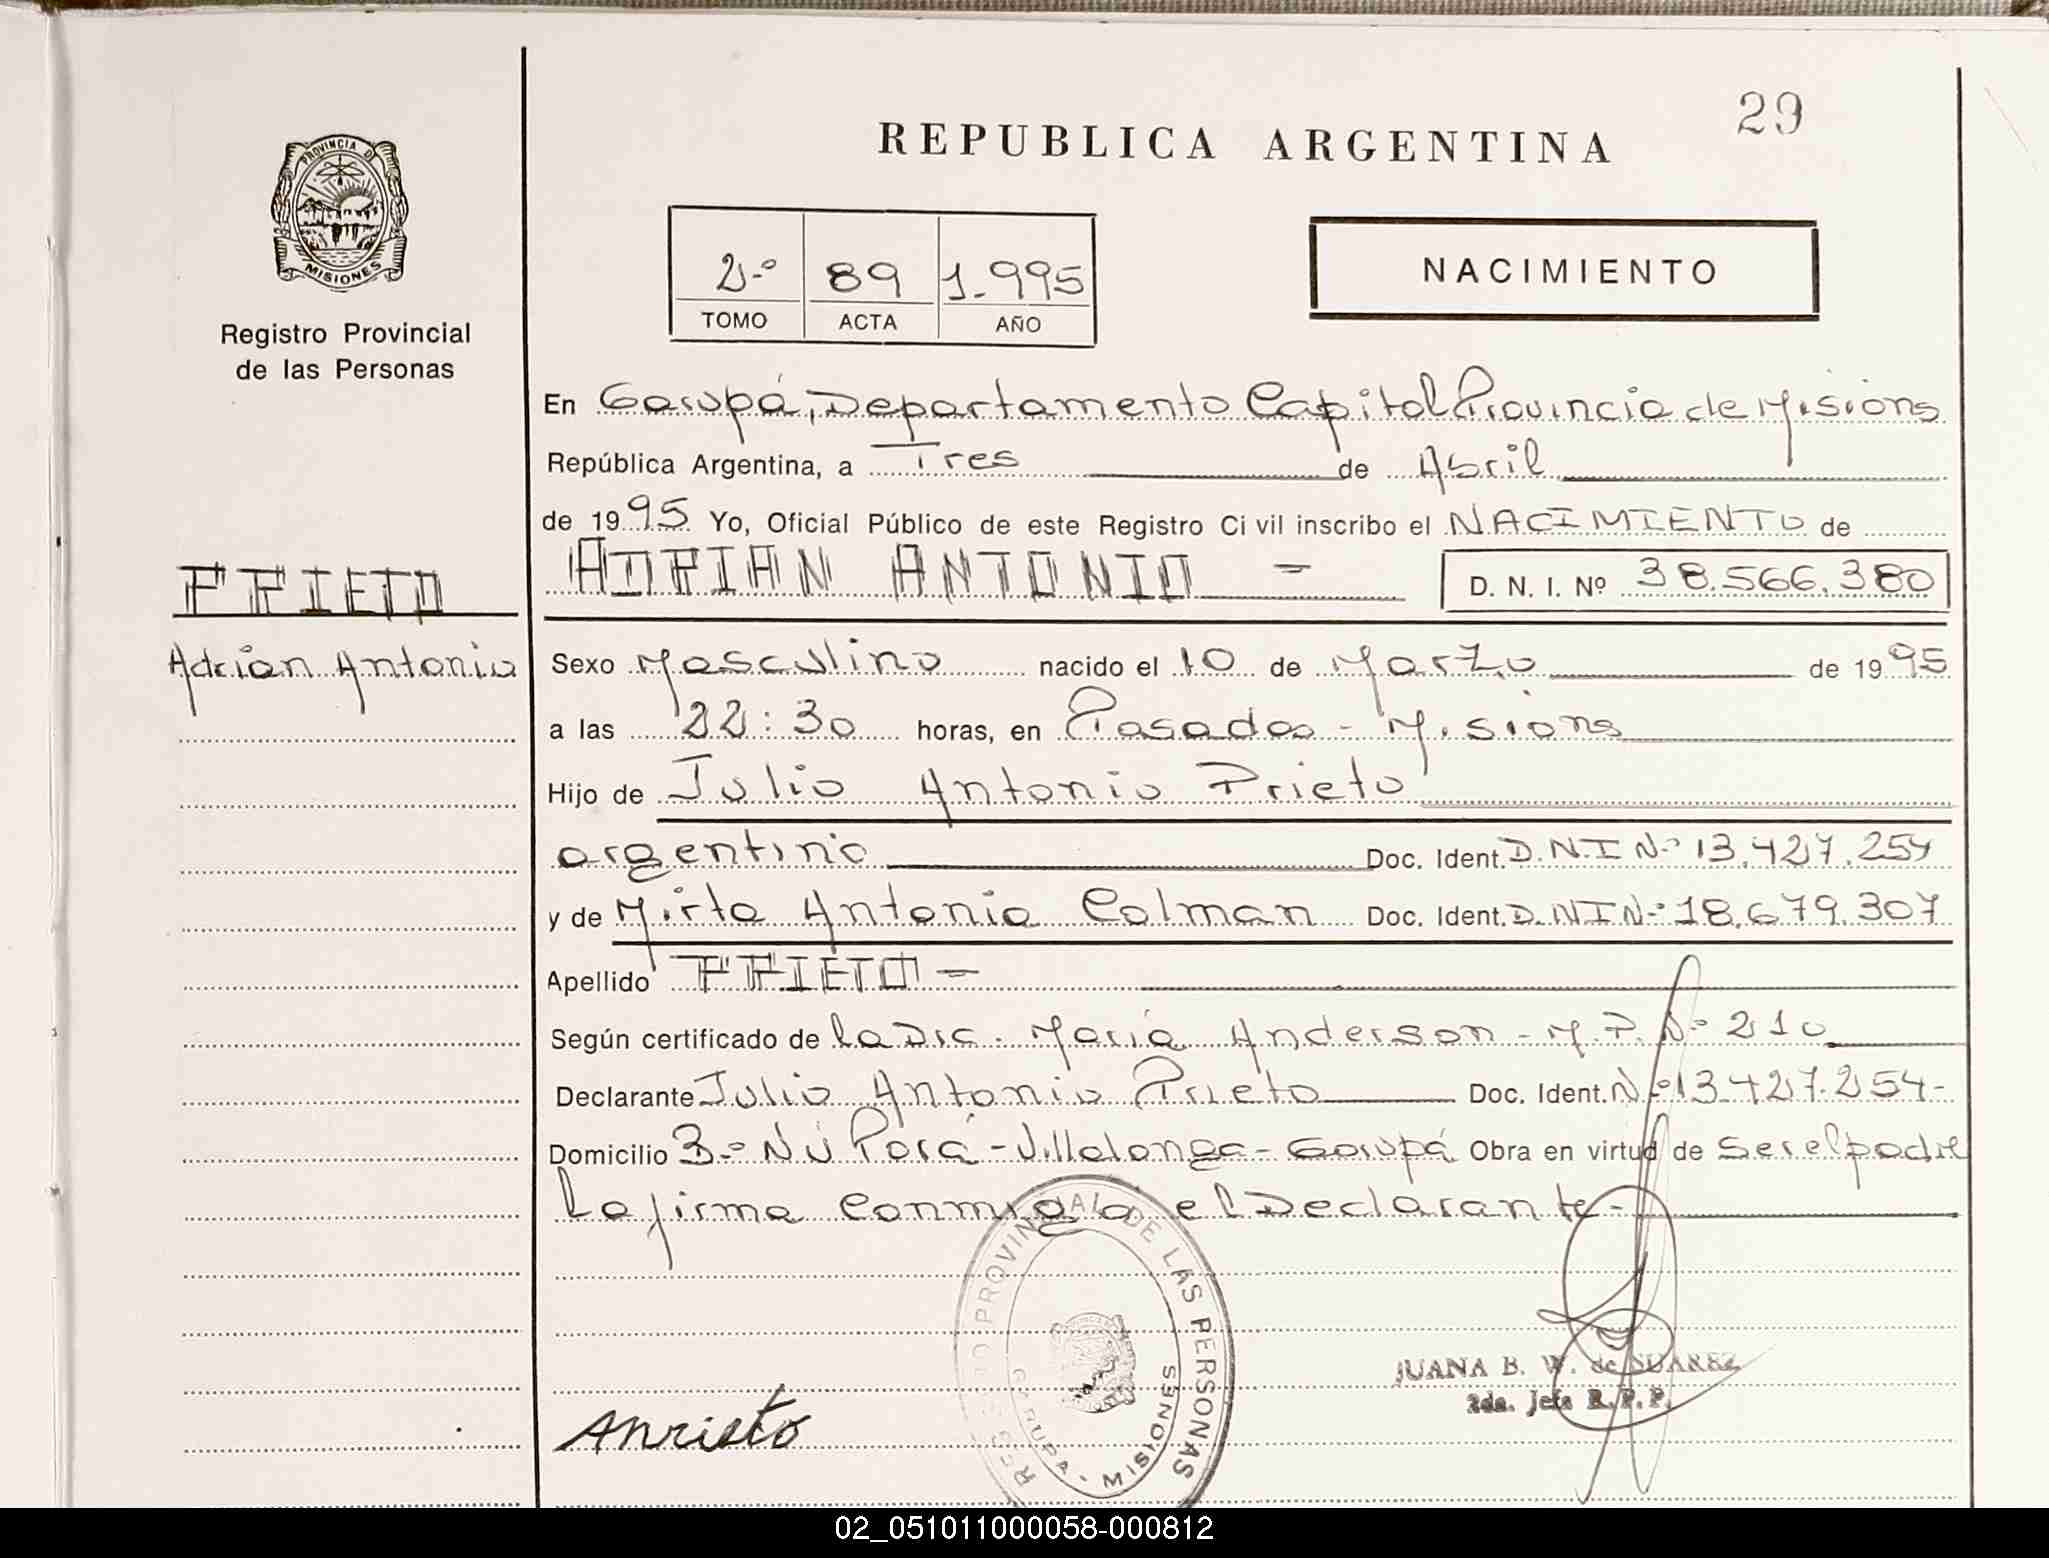 29
REPUBLICA ARGENTINA
PROVINCIA DE
MISIONES
Registro Provincial
de las Personas
2º 89 1.995
TOMO ACTA AÑO
NACIMIENTO
En Garupá, Departamento Capital Provincia de Misions
República Argentina, a Tres de Abril
de 1995 Yo, Oficial Público de este Registro Civil inscribo el NACIMIENTO de
PRIETO
Adrian Antonio
ADRIAN ANTONIO - D. N. I. Nº 38.566.380
Sexo Masculino nacido el 10 de Marzo de 1995
a las 22:30 horas, en Posadas - Misions
Hijo de Julio Antonio Prieto
argentino Doc. Ident. D.N.I Nº 13.427.254
y de Mirta Antonia Colman Doc. Ident. D.NI Nº 18.679.307
Apellido PRIETO -
Según certificado de la Dra. María Anderson - M.P. Nº 210
Declarante Julio Antonio Prieto Doc. Ident. Nº 13.427.254-
Domicilio Bº Ñú Porá - Villalonga - Garupá Obra en virtud de ser el padre
La firma conmigo el Declarante-
REGISTRO PROVINCIAL DE LAS PERSONAS
GARUPA - MISIONES
JUANA B. W. de SUAREZ
2da. Jefa R.P.P.
02_051011000058-000812